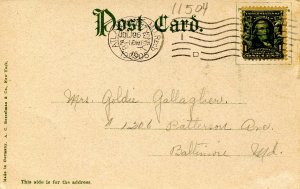 11504
Post Card.
1905
D
Mrs. Goldie Gallagher
# 1206 Patterson Ave.
Baltimore Md.
This side is for the address.
Made in Germany. A. C. Bosselman & Co., New York.